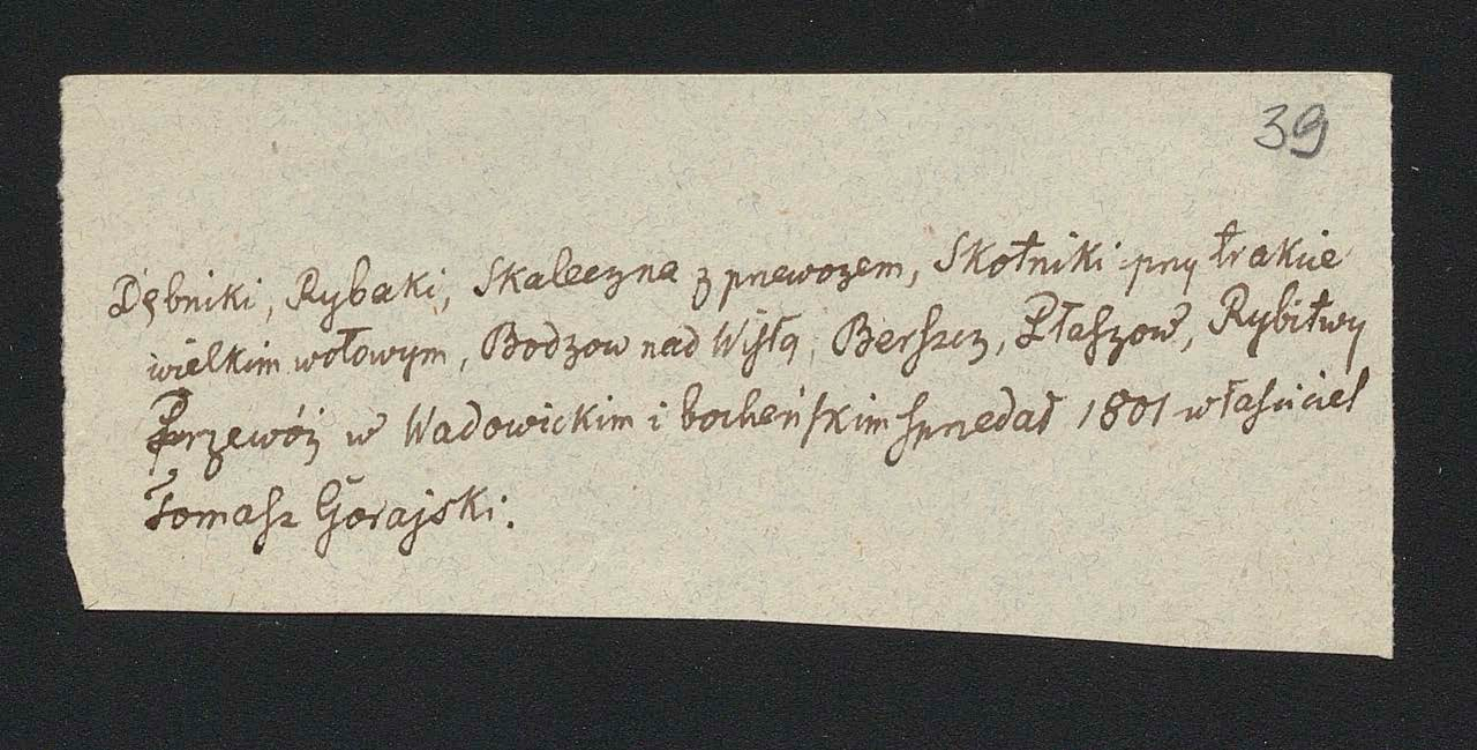 39
Dębniki, Rybaki, Skaleczna z przewozem, Skotniki przy trakcie
wielkim wołowym, Bodzow nad Wisłą, Berszcz, Płaszow, Rybitwy
Przewóz w Wadowickim i bocheńskim sprzedał 1801 właściciel
Tomasz Gorajski.